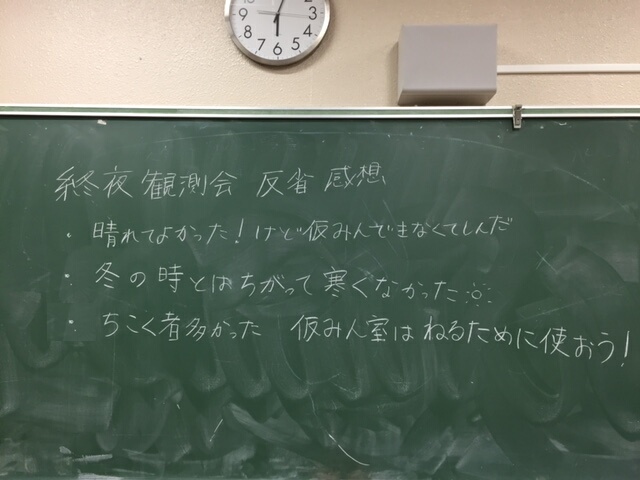 10 2 3 4 5 6 7 8 9
終夜観測会 反省 感想
・晴れてよかった！けど仮みんできなくてしんだ
・冬の時とはちがって寒くなかった
・ちこく者多かった 仮みん室はねるために使おう！